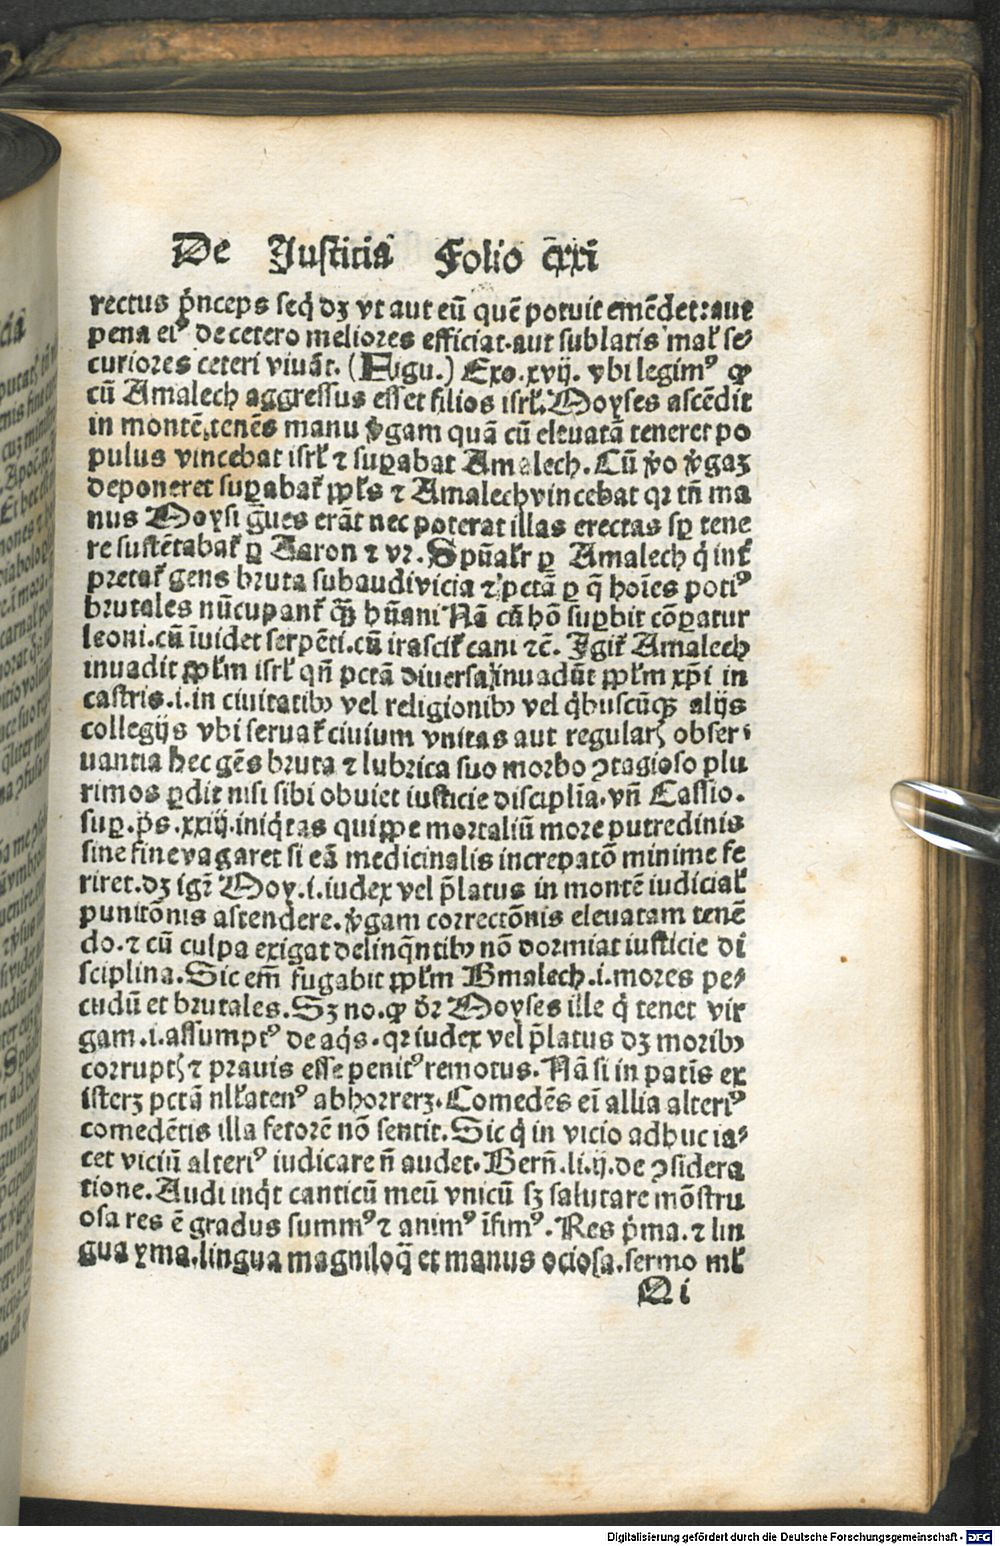 De Justiciā Folio cxxi
rectus pͥnceps seq̄ dꝫ vt aut eū quē potuit emēdet: aut
pena eiꝰ de cetero meliores efficiat. aut sublatis malꝭ se⸗
curiores ceteri viuāt. (Figu.) Exo. xvij. vbi legimꝰ ꝙ
cū Amalech aggressus esset filios isrl̄. Moyses ascēdit
in montē tenēs manu v̄gam quā cū eleuatā teneret po
pulus vincebat isrl̄ ⁊ suꝑabat Amalech. Cū v̄o v̄gaꝫ
deponeret suꝑabat᷑ ppl̄s ⁊ Amalech vincebat qꝛ tn̄ ma
nus Moysi ḡues erāt nec poterat illas erectas sꝑ tene
re sustētabat᷑ ꝑ Aaron ⁊ vꝛ. Spūalr̄ ꝑ Amalech q̇ int᷑
pretat᷑ gens bruta subaudi vicia ⁊ pctā ꝑ q̄ hoīes potiꝰ
brutales nūcupant᷑ qꝫ̄ hūani Nā cū hō suꝑbit cōꝑatur
leoni. cū īuidet serpēti. cū irascit᷑ cani ⁊c̄. Igit᷑ Amalech
inuadit ppl̄m isrl̄ qn̄ pctā diuersa inuadūt ppl̄m xp̄i in
castris .i. in ciuitatibꝰ vel religionibꝰ vel q̇buscūqꝫ alijs
collegijs vbi seruat᷑ ciuium vnitas aut regularꝭ obser⸗
uantia hec gēs bruta ⁊ lubrica suo morbo ꝯtagioso plu
rimos ꝑdit nisi sibi obuiet iusticie disciplīa. vn̄ Cassio.
suꝑ. ps̄. xxiij. iniq̇tas quippe mortaliū more putredinis
sine fine vagaret si eā medicinalis increpatō minime fe
riret. dꝫ igr̄ Moy. .i. iudex vel p̄latus in montē iudicial᷑
punitōnis ascendere. v̄gam correctōnis eleuatam tenē
do. ⁊ cū culpa exigat delinq̄ntibꝰ nō dormiat iusticie di
sciplina. Sic em̄ fugabit ppl̄m Amalech .i. mores pe⸗
cudū et brutales. Sꝫ no. ꝙ dr̄ Moyses ille q̇ tenet vir
gam .i. assumptꝰ de aq̇s. qꝛ iudex vel p̄latus dꝫ moribꝰ
corruptꝭ ⁊ prauis esse penitꝰ remotus. Nā si in patīs ex
isterꝫ pctā nl̄latenꝰ abhorrerꝫ. Comedēs eī allia alteriꝰ
comedētis illa fetorē nō sentit. Sic q̇ in vicio adhuc ia⸗
cet viciū alteriꝰ iudicare n̄ audet. Bern̄. li. ij. de ꝯsidera
tione. Audi inq̇t canticū meū vnicū sꝫ salutare mōstru
osa res ē gradus summꝰ ⁊ animꝰ īfimꝰ. Res pͥma. ⁊ lin
gua yma. lingua magniloq̄ et manus ociosa. sermo ml᷑
Q i
Digitalisierung gefördert durch die Deutsche Forschungsgemeinschaft - DFG